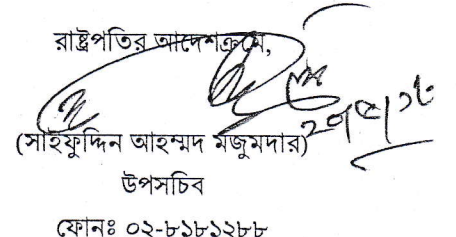 রাষ্ট্রপতির আদেশক্রমে,
(সাইফুদ্দিন আহম্মদ মজুমদার)
উপসচিব
ফোনঃ ০২-৮১৮১২৮৮